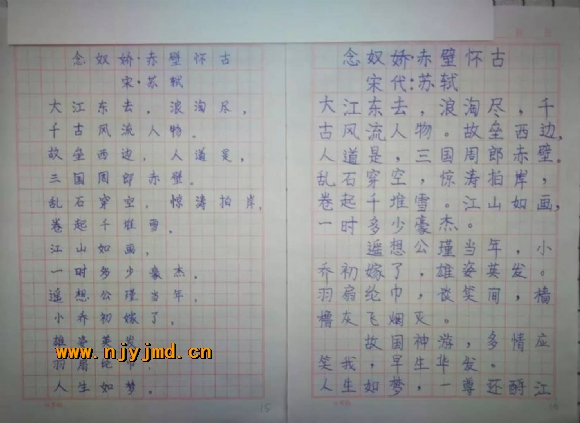 念奴娇·赤壁怀古
宋·苏轼
大江东去，浪淘尽，
千古风流人物。
故垒西边，人道是，
三国周郎赤壁。
乱石穿空，惊涛拍岸，
卷起千堆雪，
江山如画，
一时多少豪杰。
遥想公瑾当年，
小乔初嫁了，
雄姿英发
羽扇纶巾，
人生如梦，
15
念奴娇·赤壁怀古
宋代：苏轼
大江东去，浪淘尽，千
古风流人物。故垒西边，
人道是，三国周郎赤壁。
乱石穿空，惊涛拍岸，
卷起千堆雪。江山如画，
一时多少豪杰。
遥想公瑾当年，小
乔初嫁了，雄姿英发。
羽扇纶巾，谈笑间，樯
橹灰飞烟灭。
故国神游，多情应
笑我，早生华发。
人生如梦，一尊还酹江
www.njyjmd.cn